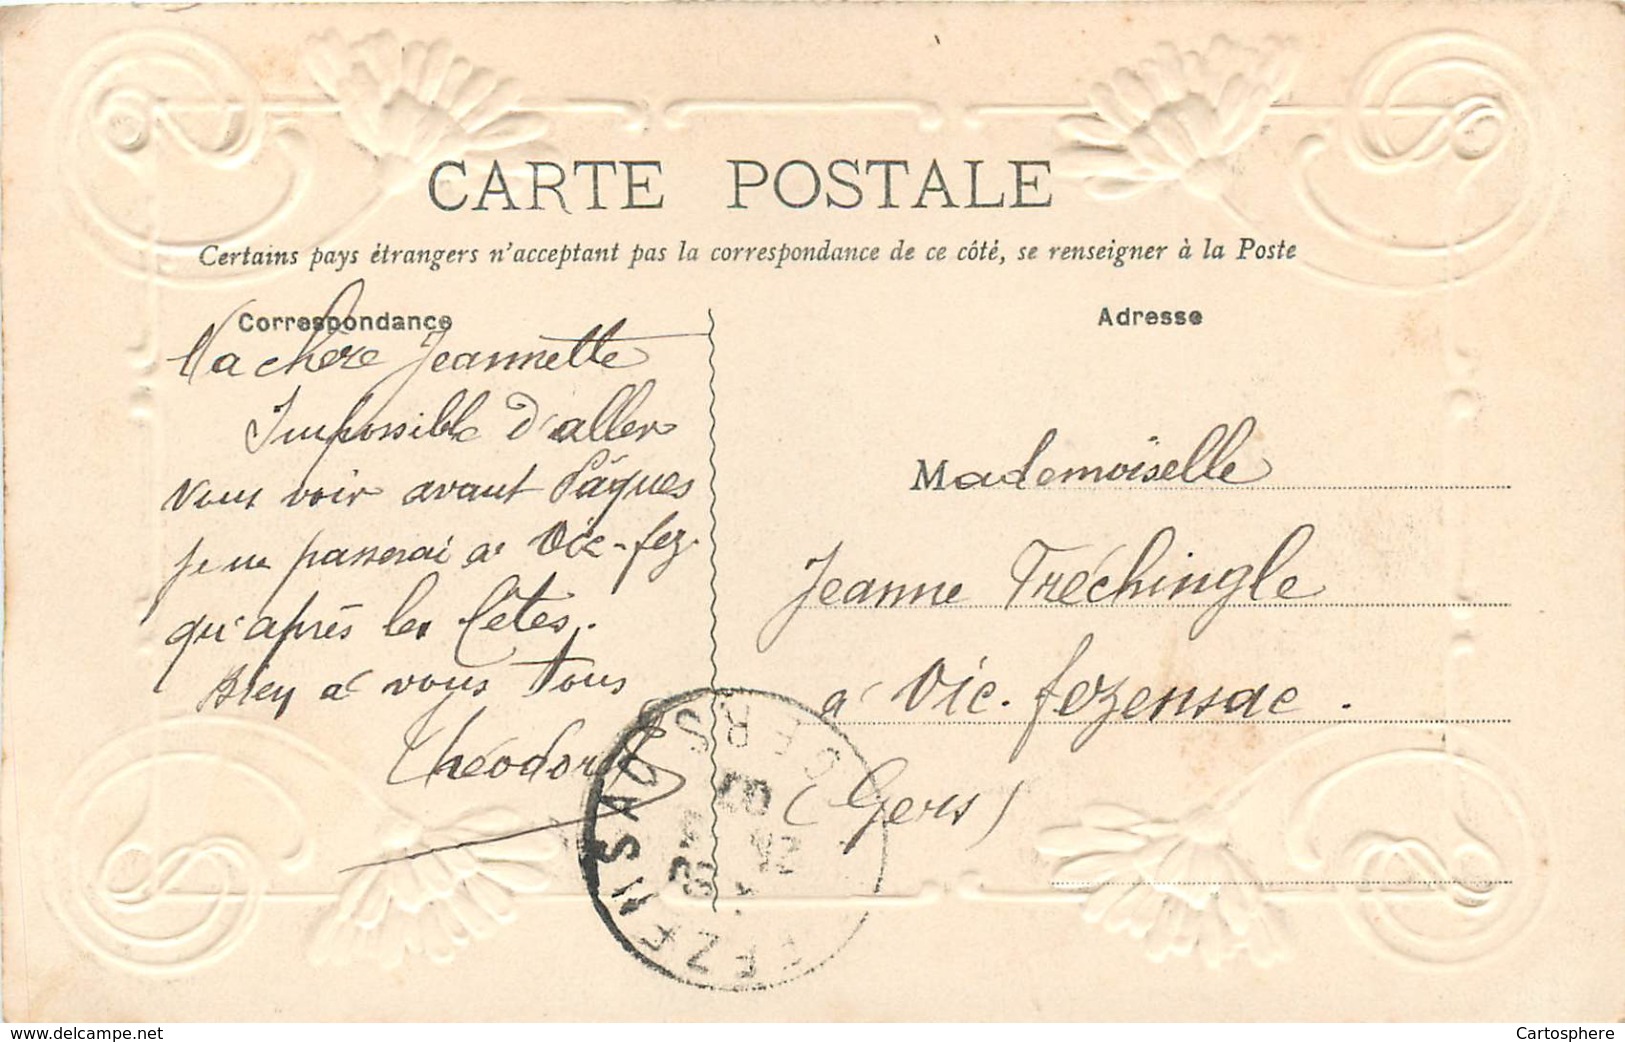 CARTE POSTALE
Certains pays étrangers n'acceptant pas la correspondance de ce côté, se renseigner à la Poste
Correspondance
Ma chère Jeannette
Impossible d'aller
vous voir avant Pâques
je ne passerai à Vic-fez.
qu'après les fêtes.
Bien à vous tous
Théodore
Adresse
Mademoiselle
Jeanne Tréchingle
à Vic-fezensac.
(Gers)
FEZENSAC GERS
https://www.delcampe.net
Cartosphere